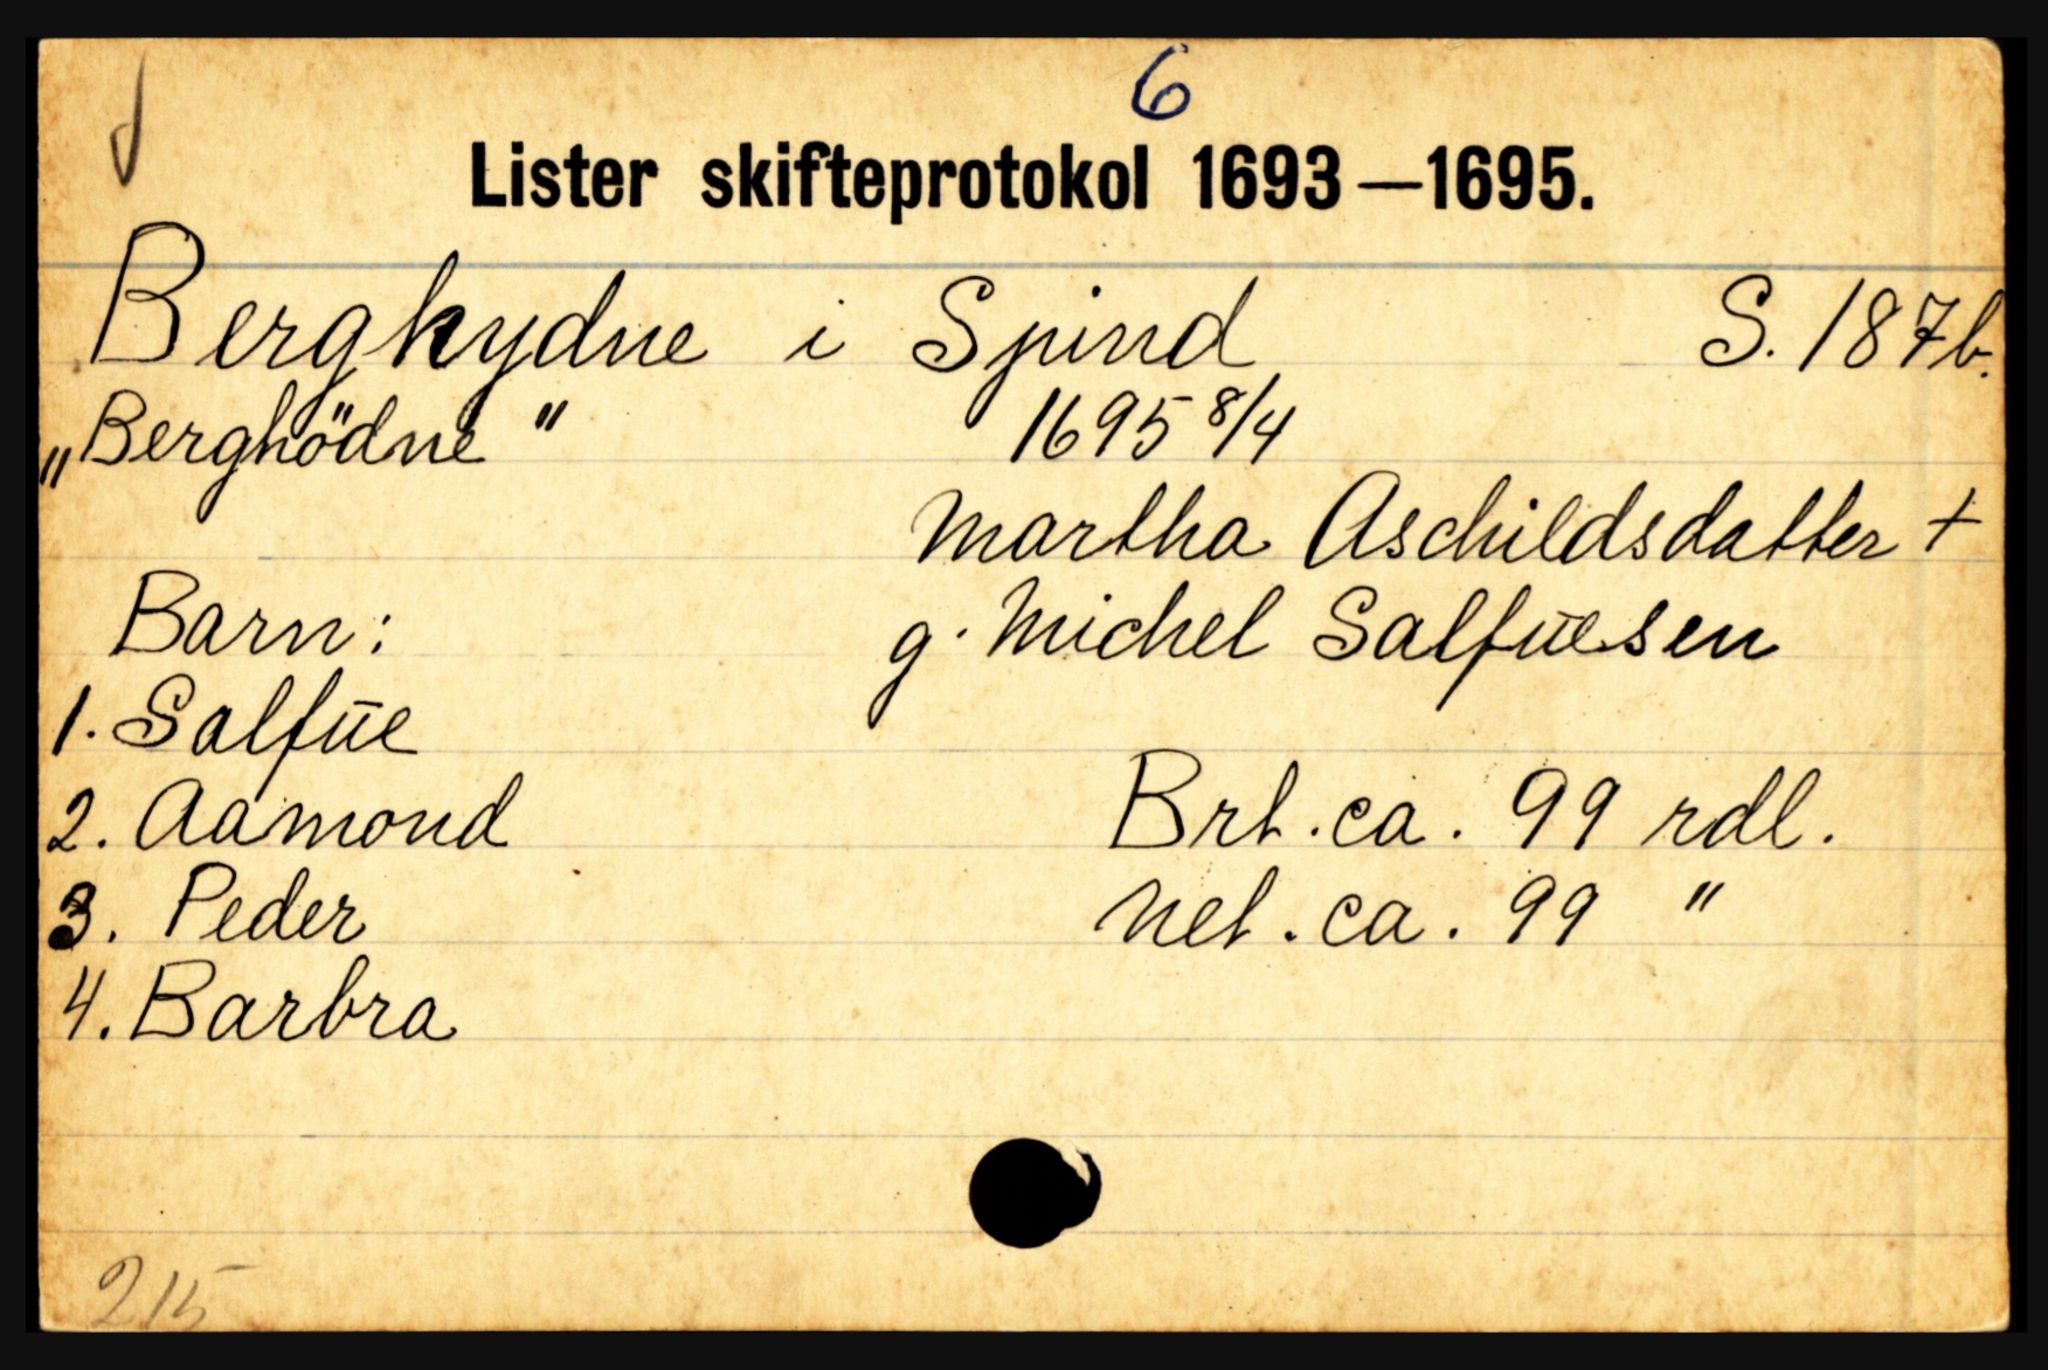 6
Lister skifteprotokol 1693—1695.
Bergkydne i Spind S. 187b.
„Berghödne" 1695 8/4
Martha Aschildsdatter +
Barn: g. Michel Salfūesen
1. Salfūe
2. Aamond Brt. ca. 99 rdl.
3. Peder Net. ca. 99 "
4. Barbra
215